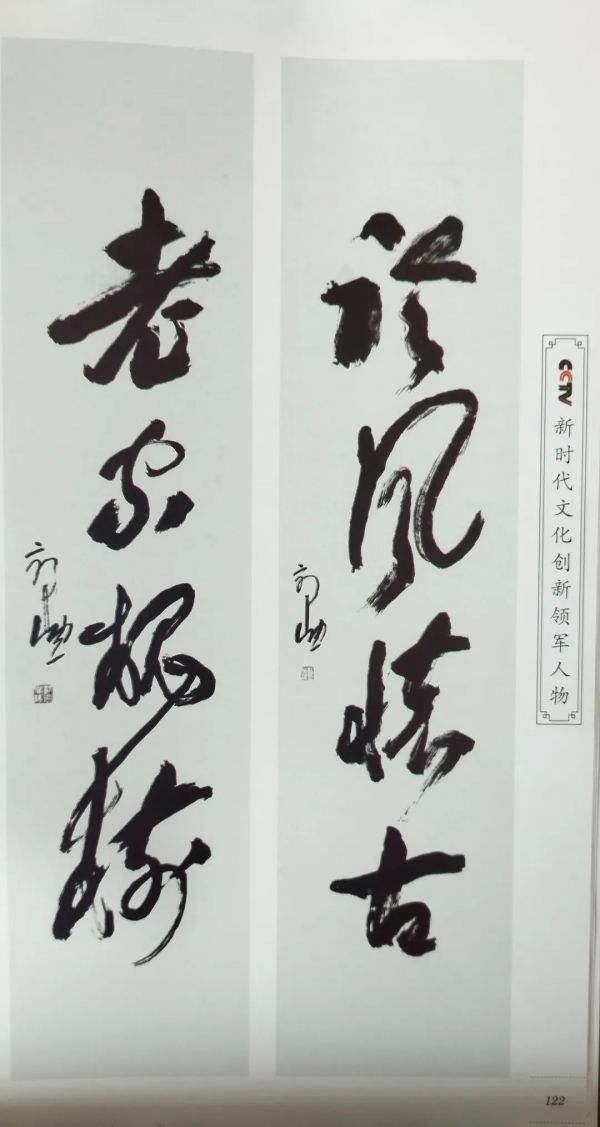 风怀古
老家槐树
CCTV 新时代文化创新领军人物
122